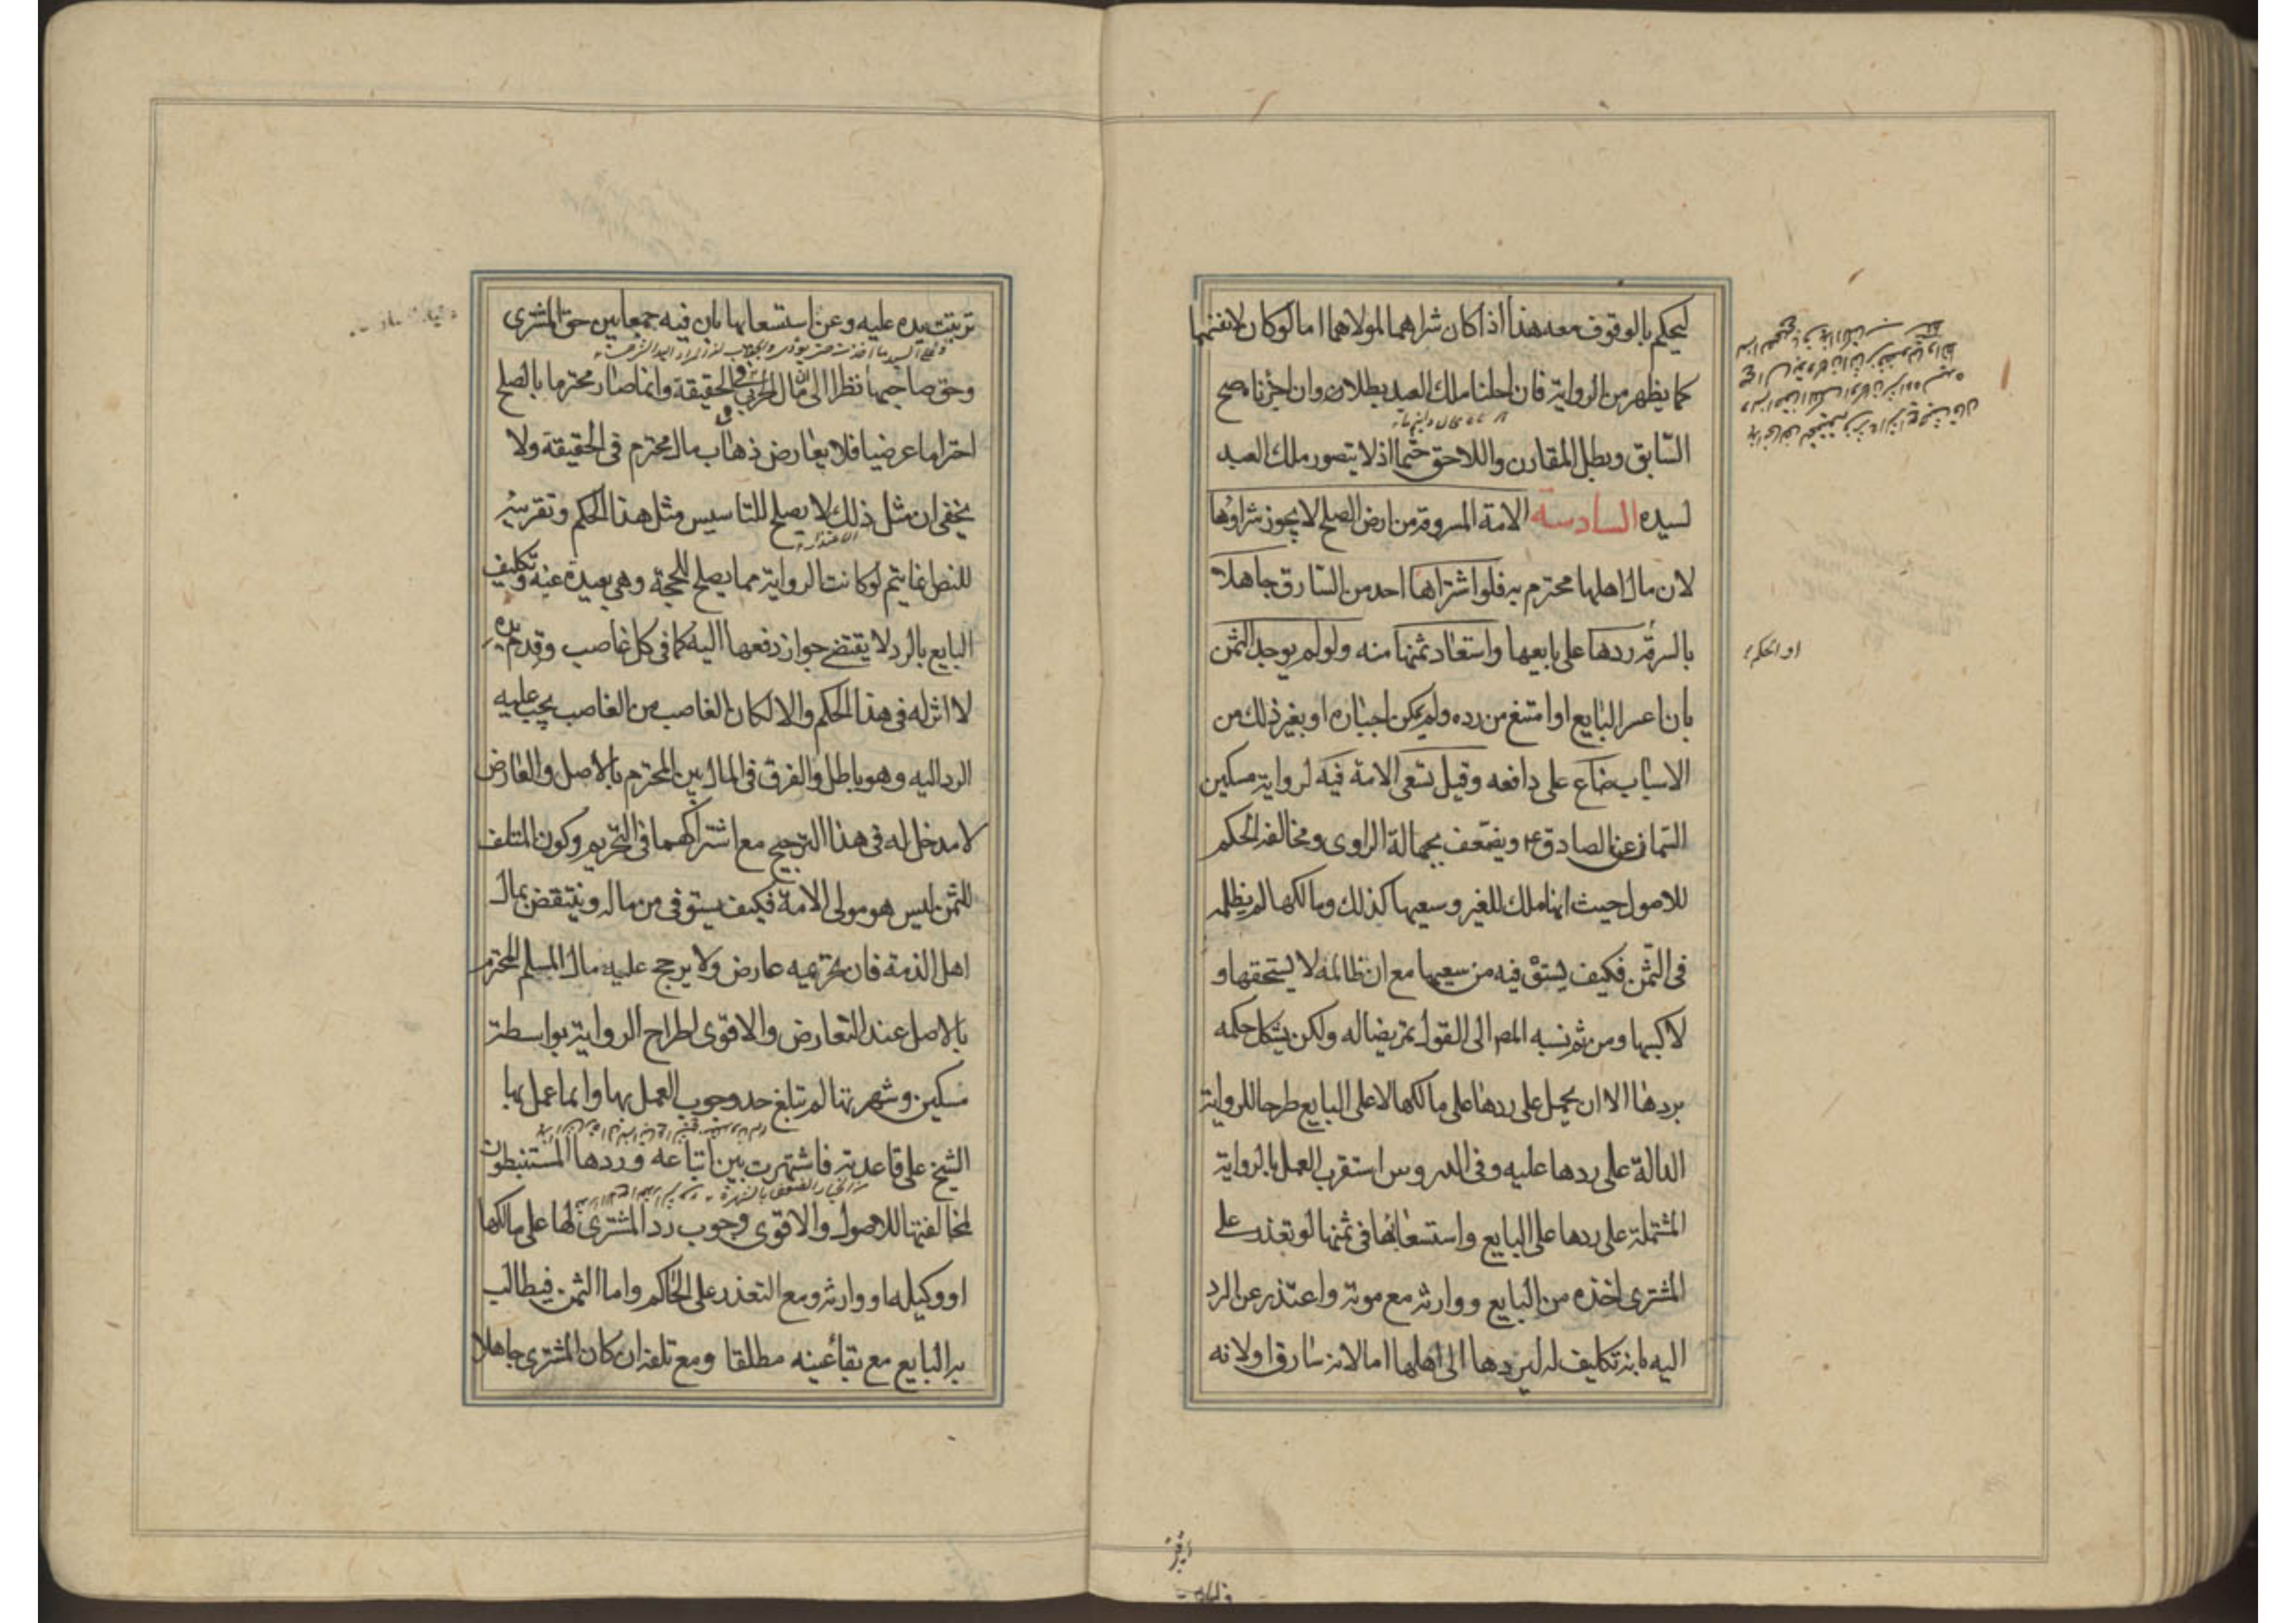 ليحكم بالوقوف معه هذا اذا كان شراهما لمولاهما اما لو كان لانفسهما
كما يظهر من الرواية فان احلنا ملك العبد بطلا وان اجزناه صح
السابق وبطل المقارن واللاحق حتما اذ لا يتصور ملك العبد
لسيده السادسة الامة المسروقة من ارض الصلح لا يجوز شراؤها
لان مال اهلها محترم به فلو اشتراها احد من السارق جاهلا
بالسرقة ردها على بايعها واستعاد ثمنها منه ولو لم يوجد الثمن
بان اعسر البايع او امتنع من رده ولم يمكن اجباره او بغير ذلك من
الاسباب ضاع على دافعه وقيل تسعى الامة فيه لرواية مسكين
السمان عن الصادق ع ويضعف بجهالة الراوى ومخالفة الحكم
للاصول حيث انها ملك للغير وسعيها كذلك ومالكها لم يظلمه
فى الثمن فكيف يستوفيه من سعيها مع ان ظالمه لا يستحقها و
لا كسبها ومن ثم نسبه المص الى القول تمريضا له ولكن يشكل حكمه
بردها الا ان يحمل على ردها على مالكها لا على البايع طرحا للرواية
الدالة على ردها عليه وفى الدروس استقرب العمل بالرواية
المشتملة على ردها على البايع واستسعائها فى ثمنها لو تعذر على
المشترى اخذه من البايع ووارثه مع موته واعتذر عن الرد
اليه بانه تكليف له ليردها الى اهلها اما لانه سارق او لانه
او الحكم
ترتبت يده عليه وعن استسعائها بان فيه جمعا بين حق المشترى
وحق صاحبها نظرا الى ان مال الحربى فى الحقيقة وانما صار محترما بالصلح
احتراما عرضيا فلا يعارض ذهاب مال محترم فى الحقيقة ولا
يخفى ان مثل ذلك لا يصلح للتاسيس مثل هذا الحكم وتقريبه
الاعتذار
للنص انما يتم لو كانت الرواية مما يصلح للحجة وهى بعيدة عنه وتكليف
البايع بالرد لا يقتضى جواز دفعها اليه كما فى كل غاصب وقدم يده
لا اثر له فى هذا الحكم والا لكان الغاصب من الغاصب يجب عليه
الرد اليه وهو باطل والفرق فى المال بين المحترم بالاصل والعارض
لا مدخل له فى هذا الترجيح مع اشتراكهما فى التحريم وكون المتلف
للثمن ليس هو مولى الامة فكيف يستوفى من ماله وينتقض بمال
اهل الذمة فان تحريمه عارض ولا يرجح عليه مال المسلم المحترم
بالاصل عند التعارض والاقوى اطراح الرواية بواسطة
مسكين وشهرتها لم تبلغ حد وجوب العمل بها وانما عمل بها
الشيخ على قاعدته فاشتهرت بين اتباعه وردها المستنبطون
لمخالفتها للاصول والاقوى وجوب رد المشترى لها على مالكها
او وكيله او وارثه ومع التعذر على الحاكم واما الثمن فيطالب
به البايع مع بقاء عينه مطلقا ومع تلفه ان كان المشترى جاهلا